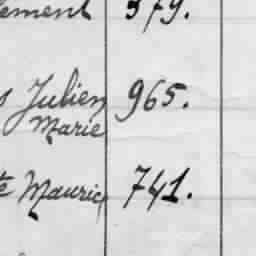 lement 379.
s Julien 965.
Marie
te Maurice 741.